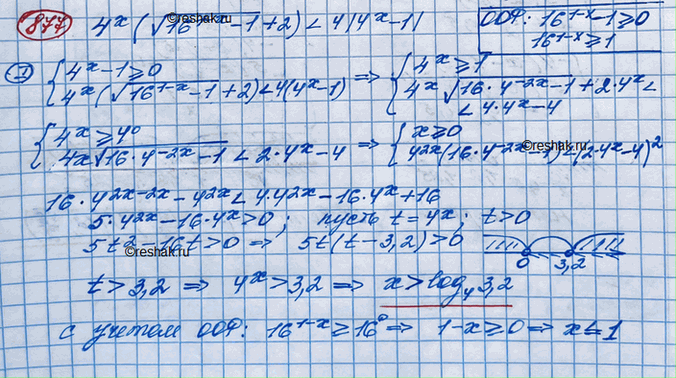 877 4^x (√16^(1-x) - 1 + 2) < 4|4^x - 1|
ООФ: 16^(1-x) - 1 ≥ 0
16^(1-x) ≥ 1
I { 4^x - 1 ≥ 0 ⇒ { 4^x ≥ 1
4^x (√16^(1-x) - 1 + 2) < 4(4^x - 1) 4^x √16·4^(-2x) - 1 + 2·4^x <
< 4·4^x - 4
{ 4^x ≥ 4^0 ⇒ { x ≥ 0
4^x √16·4^(-2x) - 1 < 2·4^x - 4 4^(2x) (16·4^(-2x) - 1) < (2·4^x - 4)^2
16·4^(2x-2x) - 4^(2x) < 4·4^(2x) - 16·4^x + 16
5·4^(2x) - 16·4^x > 0 ; пусть t = 4^x ; t > 0
5t^2 - 16t > 0 ⇒ 5t(t - 3,2) > 0
0 3,2
t > 3,2 ⇒ 4^x > 3,2 ⇒ x > log_4 3,2
с учетом ООФ: 16^(1-x) ≥ 16^0 ⇒ 1-x ≥ 0 ⇒ x ≤ 1
©reshak.ru
©reshak.ru
©reshak.ru